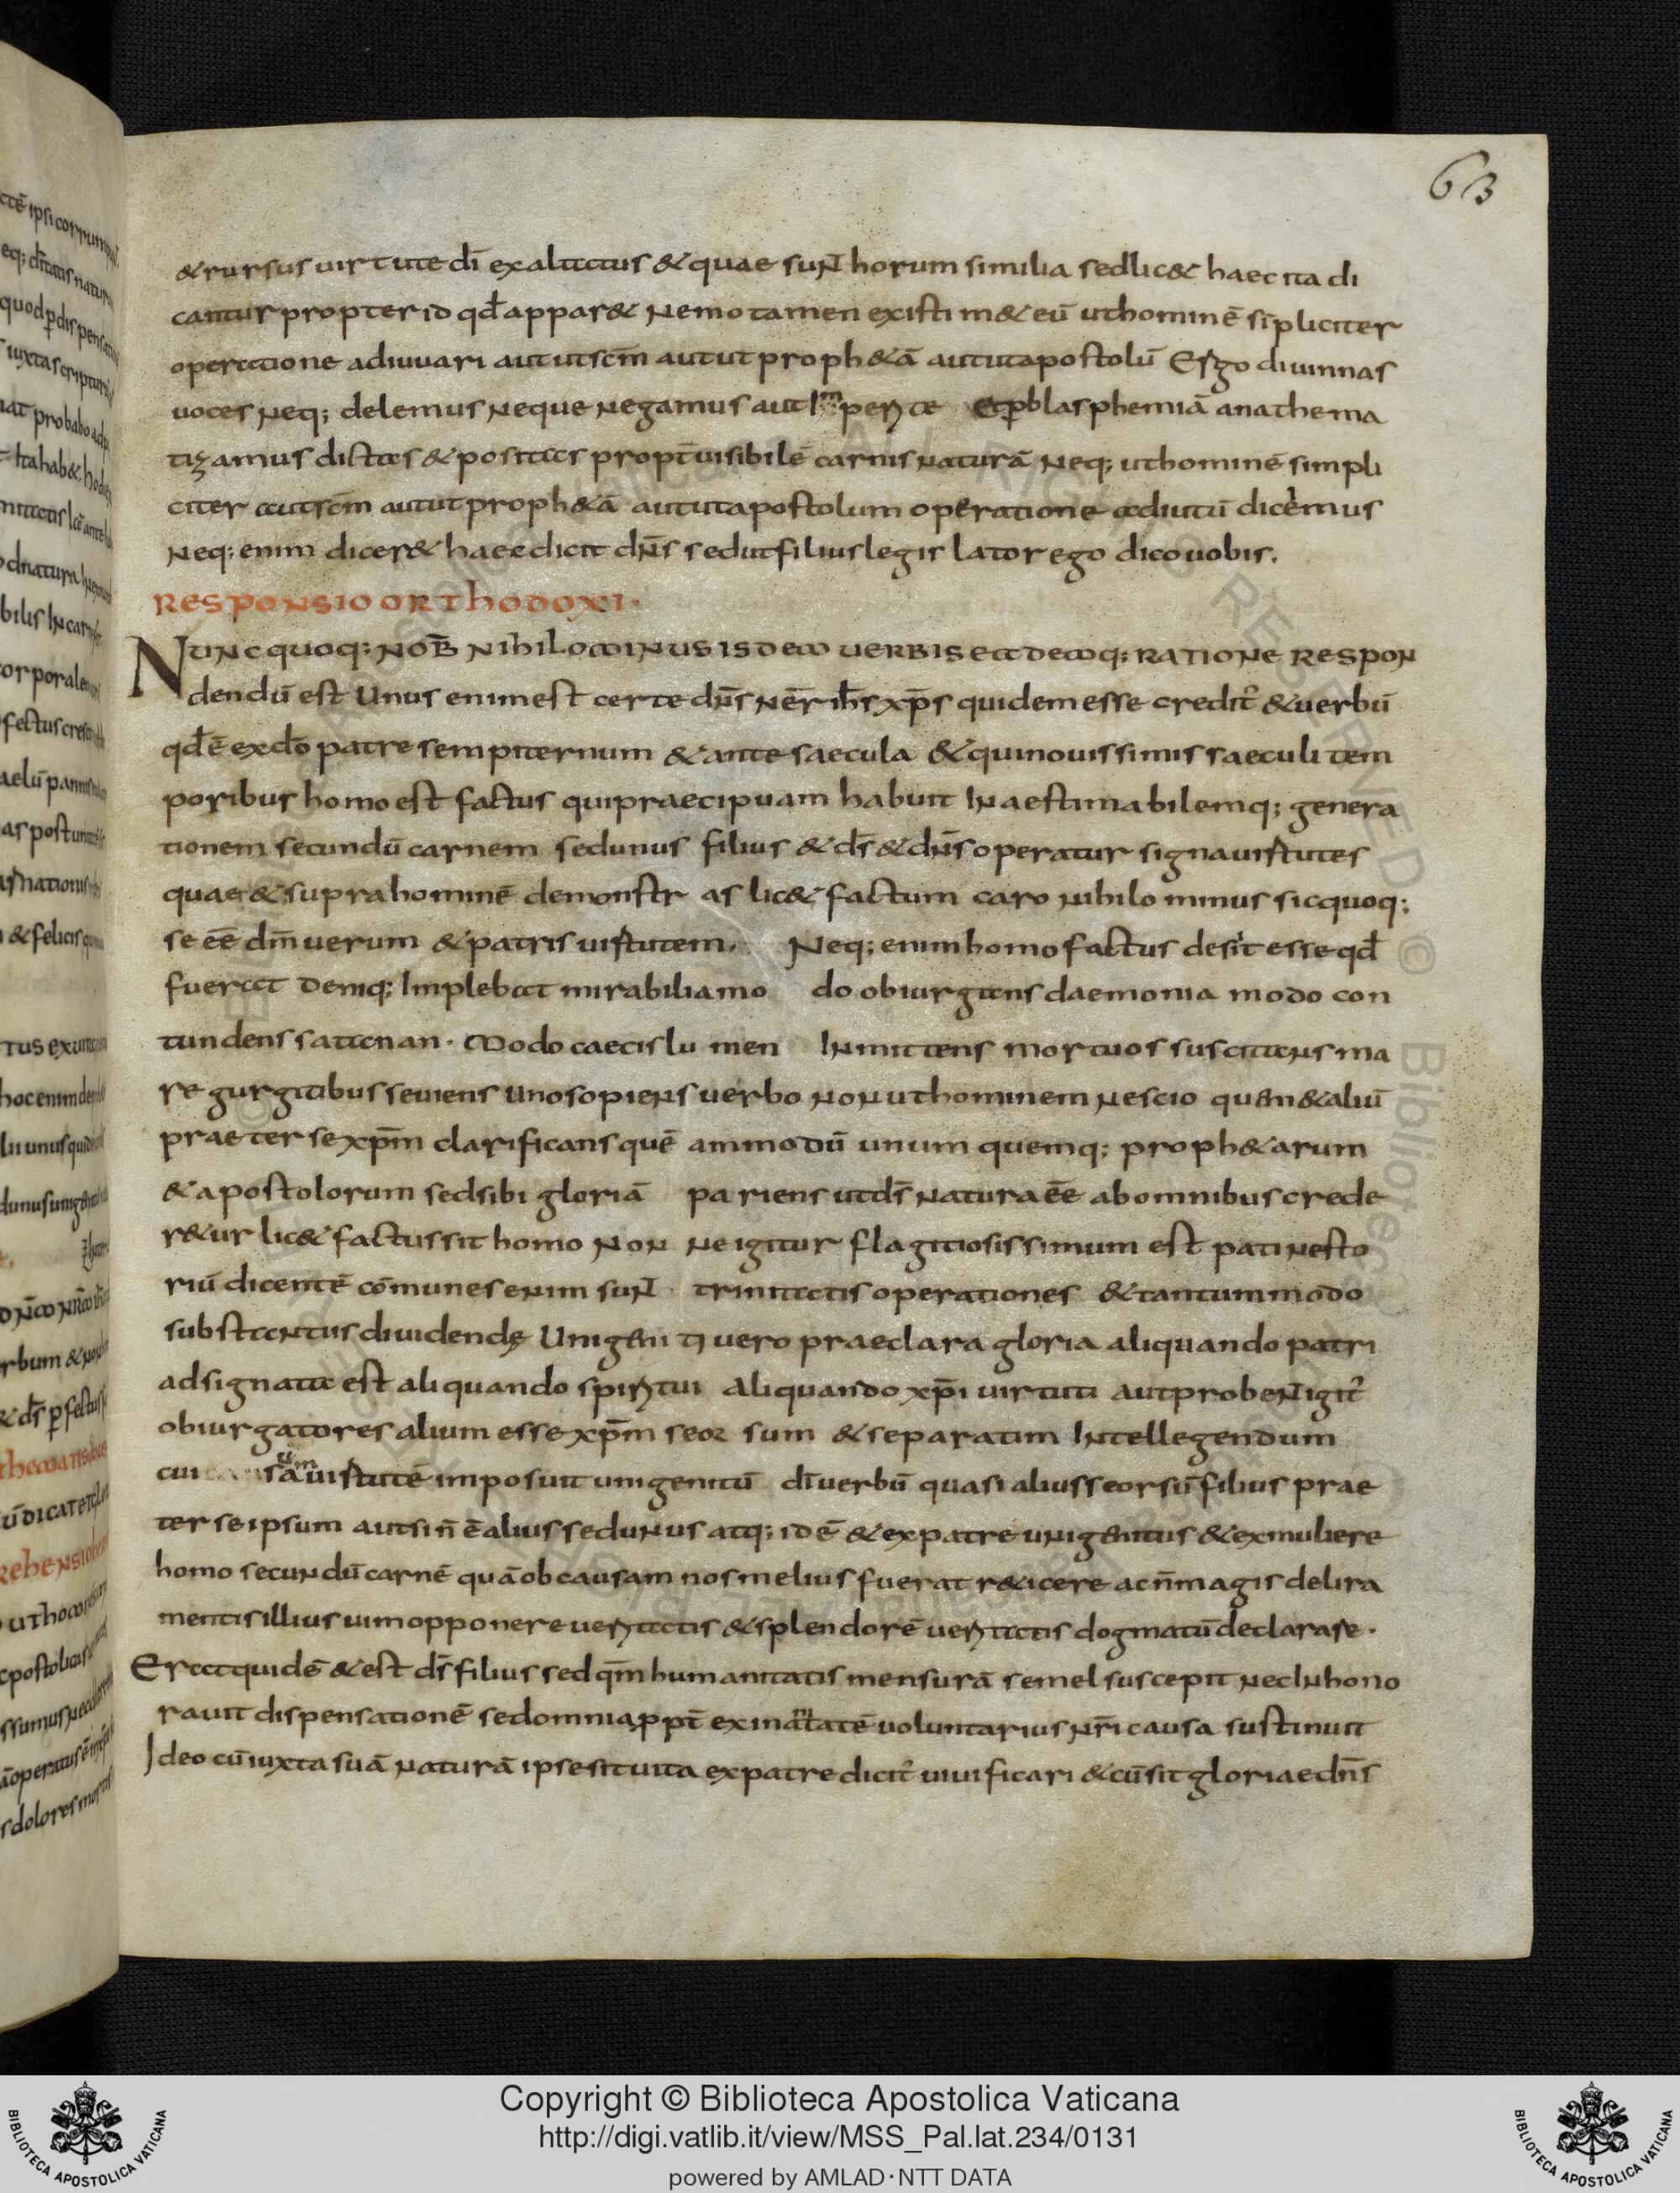 63
& rursus uirtute dī exaltatus & quae suɴt horum similia sed lic& haec ita di
cantur propter id qđ appar& nemo tamen existim& eū ut hominē sīpliciter
operatione adiuuari aut ut sc̄m aut ut proph&ā aut ut apostolū Ergo diuinnas
uoces neq; delemus neque negamus aut Imperite Et p blasphemiā anathema
tizamus dictas & positas propt̄ uisibilē carnis naturā neq; ut hominē simpli
citer aut sc̄m aut ut proph&ā aut ut apostolum operatione adiutū dicemus
neq; enim dicer& haec dicit dn̄s sed ut filius legis lator ego dico uobis.
RESPONSIO ORTHODOXI·
NUNC quoq; NOB̄ NIHILOMINUS ISDEM UERBIS EADEMQ; RATIONE RESPON
dendū est Unus enim est certe dn̄s nēr ih̄s xp̄s qui dem esse credit̄ & uerbū
qđ ē ex do̅ patre sempiternum & ante saecula & qui nouissimis saeculi tem
poribus homo est factus qui praecipuam habuit Inaestimabilemq; genera
tionem secundū carnem sed unus filius & ds̄ & dn̄s operatur signa uirtutes
quae & supra hominē demonstr as lic& factum caro nihilo minus sic quoq;
se eē dm̄ uerum & patris uirtutem. Neq; enim homo factus desit esse qđ
fuerat Deniq; Implebat mirabilia mo do obiurgans daemonia modo con
tundens satanan. Modo caecis lu men Inmittens mortuos suscitans ma
re gurgitibus seuiens uno sopiens uerbo non ut hominem nescio quem & aliū
praeter se xp̄m clarificans quē ammodū unum quemq; proph&arum
& apostolorum sed sibi gloriā pariens ut ds̄ natura eē ab omnibus crede
r&ur lic& factus sit homo non ne igitur flagitiosissimum est pati nesto
riū dicentē cōmunes enim suɴt trinitatis operationes & tantum modo
substantus diuidendę Unigeniti uero praeclara gloria aliquando patri
adsignata est aliquando spiritui aliquando xp̄i uirtuti aut probent igit̄
obiurgatores alium esse xp̄m seor sum & separatim Intellegendum
cui sum ā uirtutē imposuit unigenitū dī uerbū quasi alius seorsū filius prae
ter se ipsum aut si n̄ ē alius sed unus atq; idē & ex patre unigenitus & ex muliere
homo secundū carnē quā ob causam nos melius fuerat r&icere ac n̄ magis delira
mentis illius uim opponere ueritatis & splendorē ueritatis dogmatū declarare.
Erat quidē & est ds̄ filius sed qm̄ humanitatis mensurā semel suscepit nec Inhono
rauit dispensationē sed omnia ppt̄ exinanitatē uoluntarius nr̄i causa sustinuit
Ideo cū iuxta suā naturā ipse sit uita ex patre dicit̄ uiuificari & cū sit gloriae dn̄s
Copyright © Biblioteca Apostolica Vaticana
http://digi.vatlib.it/view/MSS_Pal.lat.234/0131
powered by AMLAD·NTT DATA